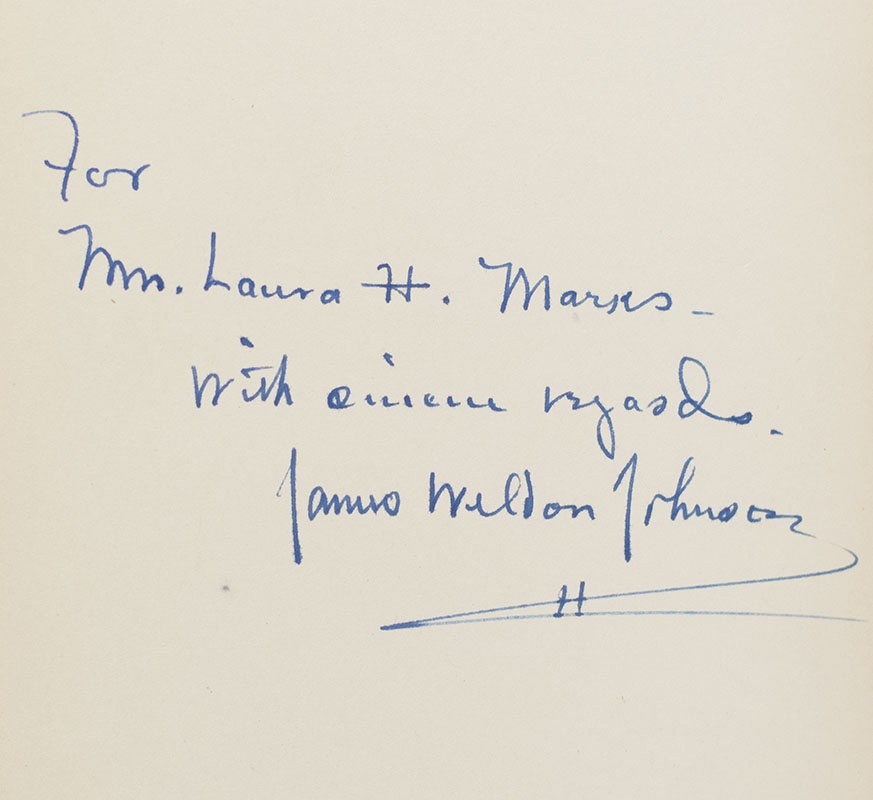 For
Mrs. Laura H. Marks –
With sincere regards.
James Weldon Johnson